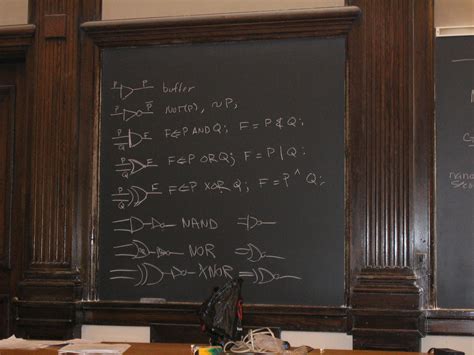 P P buffer
P P̅ NOT(P), ~P;
P Q F F⇐P AND Q; F = P & Q;
P Q F F⇐P OR Q; F = P | Q;
P Q F F⇐P XOR Q; F = P ^ Q;
NAND =
NOR =
XNOR =